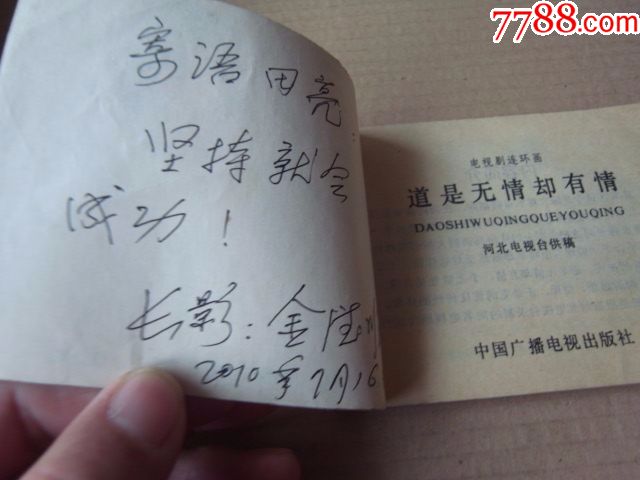 7788.com
寄语田亮
坚持就会
成功！
长影：金
2010年7月16
电视剧连环画
道是无情却有情
DAOSHIWUQINGQUEYOUQING
河北电视台供稿
中国广播电视出版社